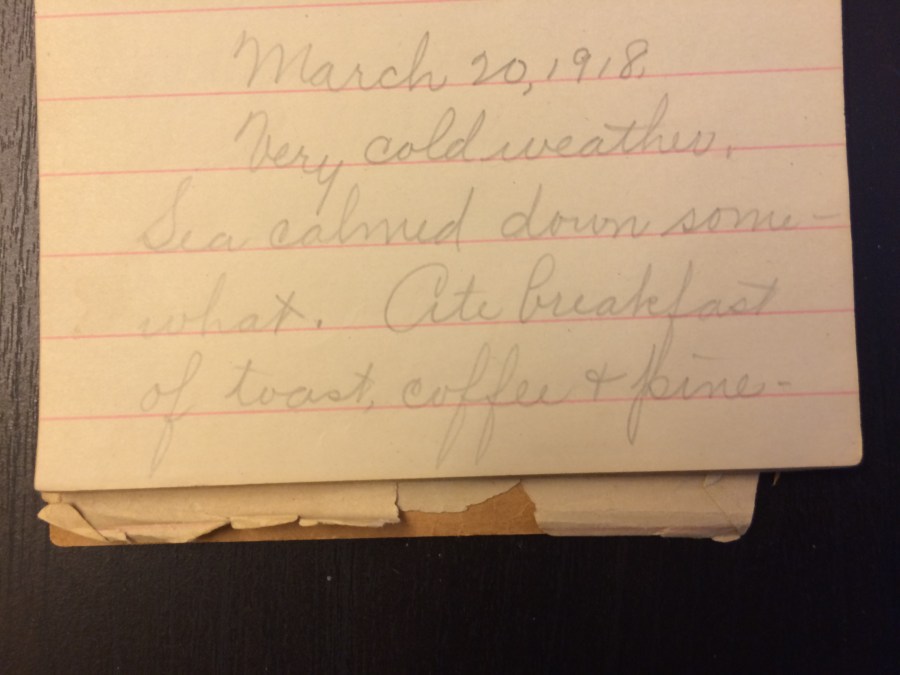 March 20, 1918.
Very cold weather.
Sea calmed down some-
what. Ate breakfast
of toast, coffee & pine-